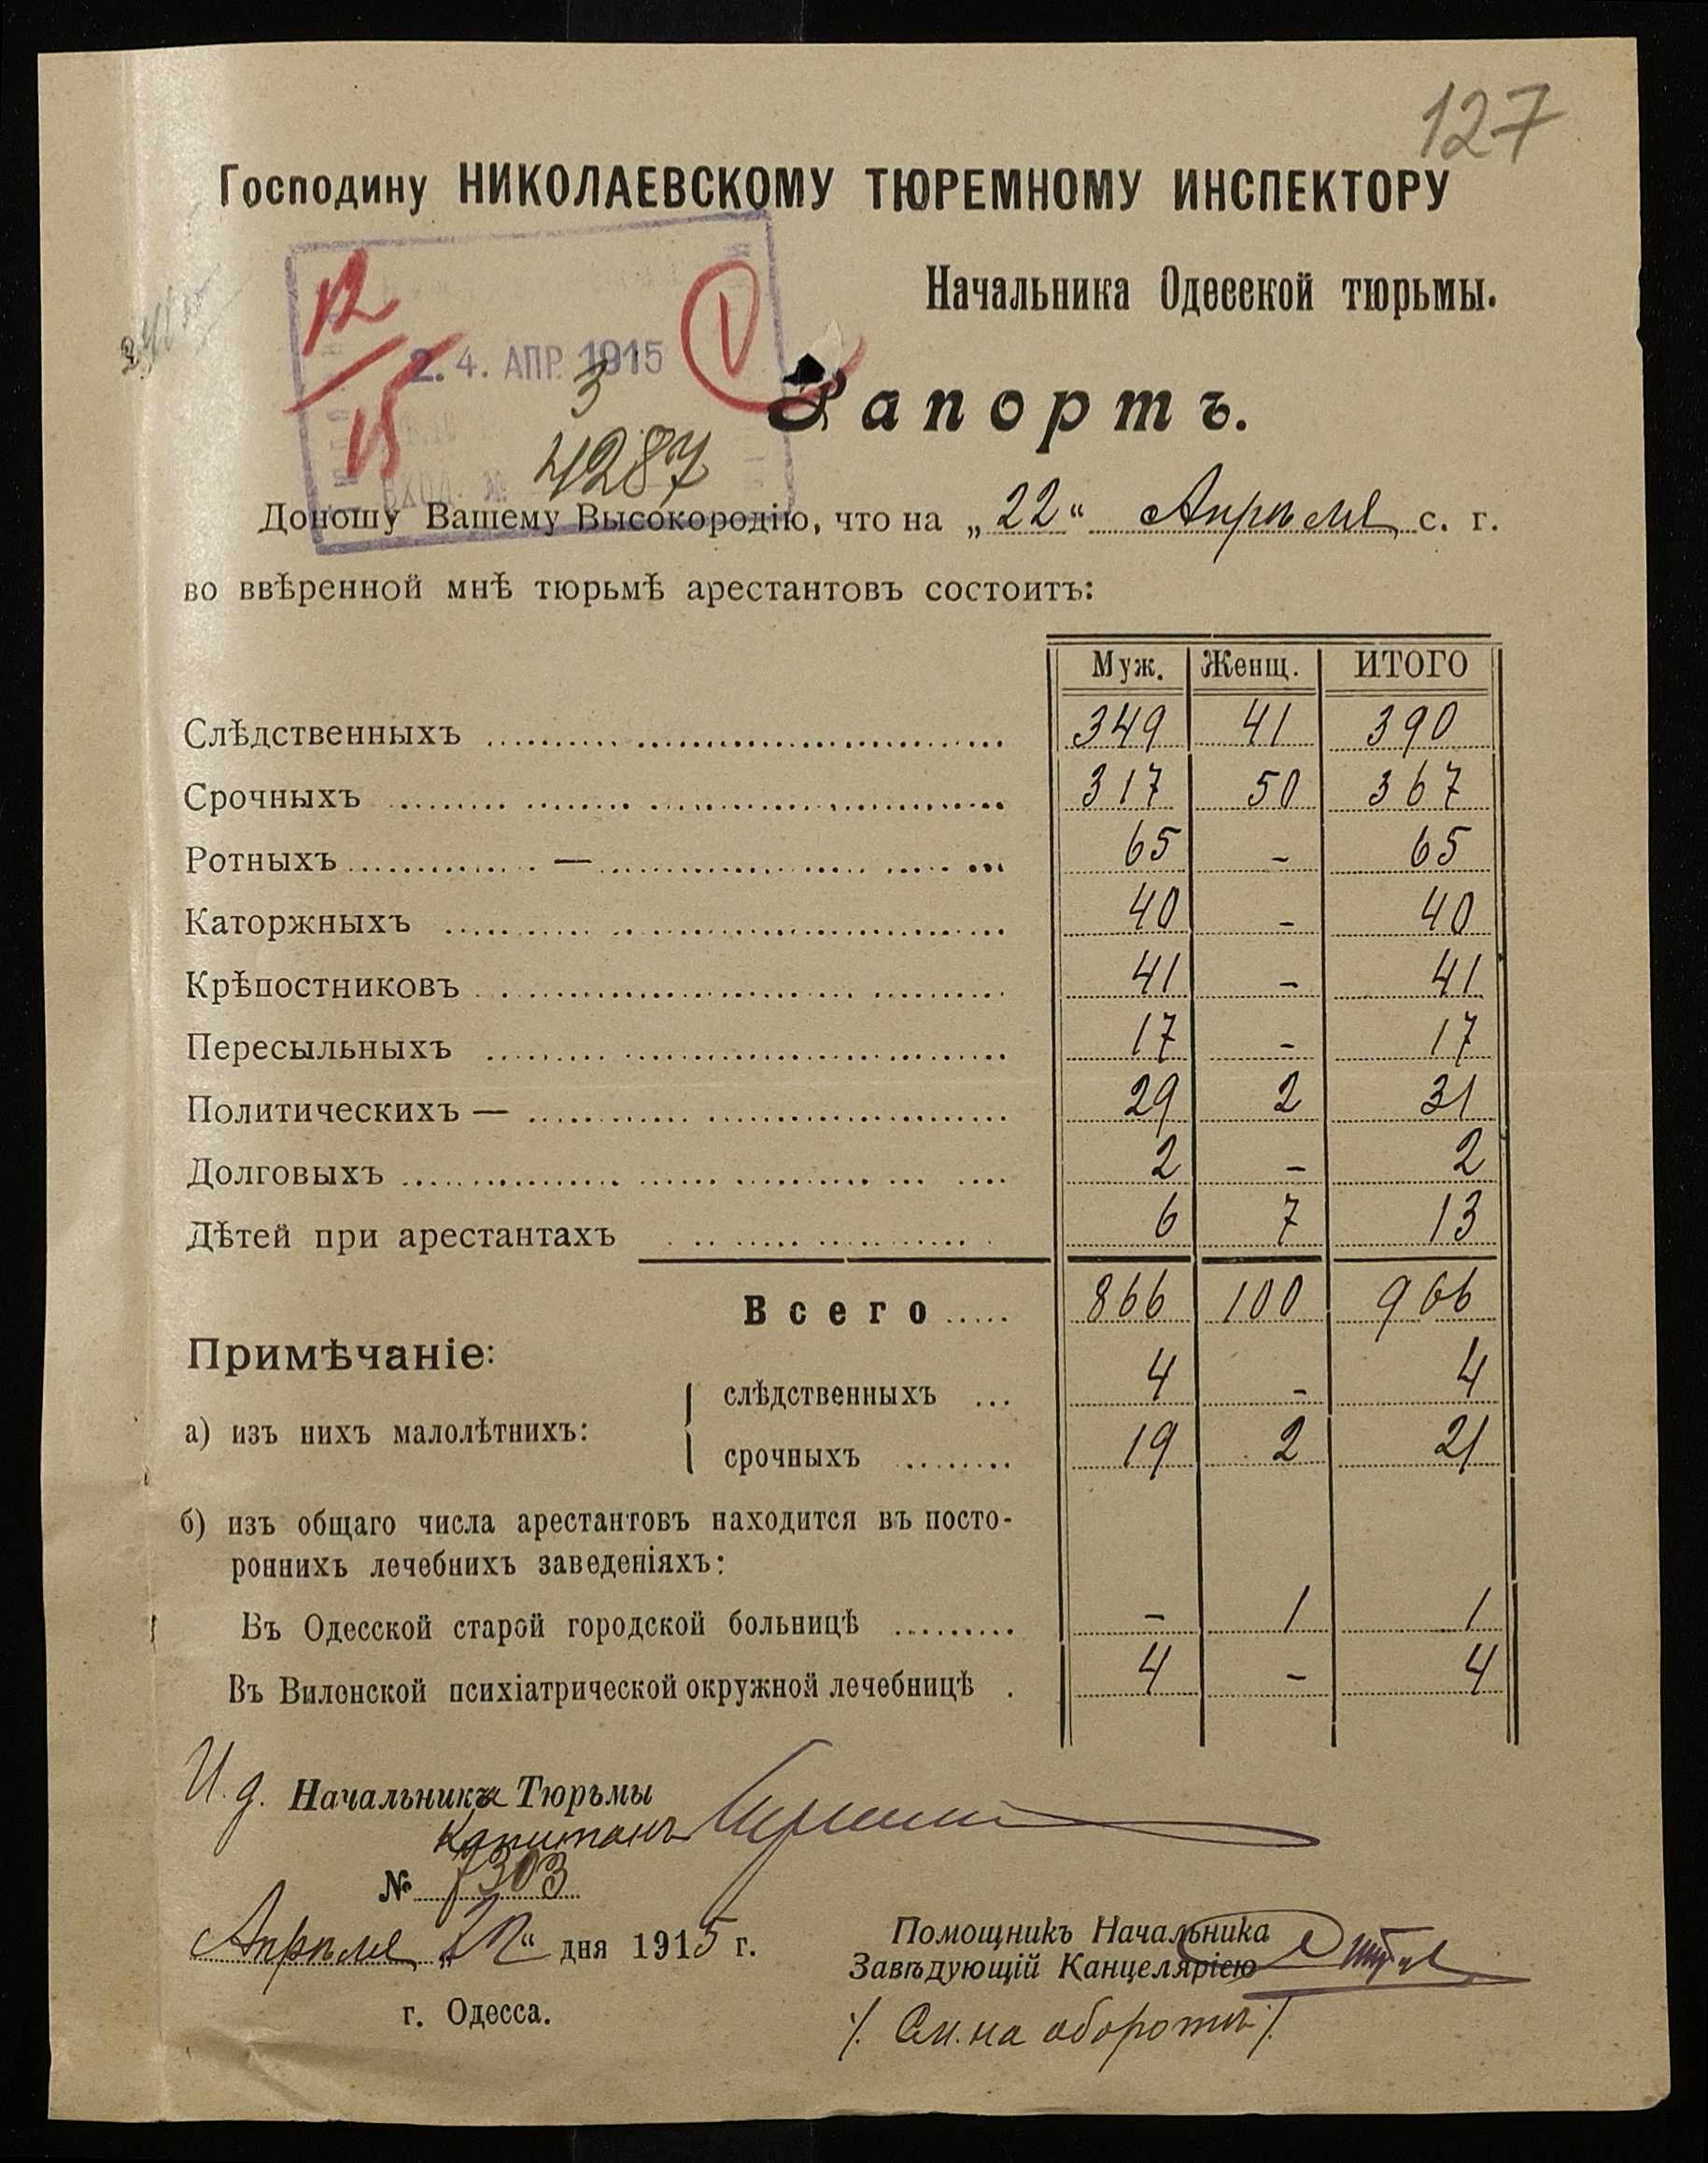 127
Господину НИКОЛАЕВСКОМУ ТЮРЕМНОМУ ИНСПЕКТОРУ
Начальника Одесской тюрьмы.
12
15
2. 4. АПР. 1915
3
4287
Рапортъ.
Доношу Вашему Высокородію, что на „22“ Апрѣля с. г.
во ввѣренной мнѣ тюрьмѣ арестантовъ состоитъ:
Муж. Женщ. ИТОГО
Слѣдственныхъ 349 41 390
Срочныхъ 317 50 367
Ротныхъ — 65 - 65
Каторжныхъ 40 - 40
Крѣпостниковъ 41 - 41
Пересыльныхъ 17 - 17
Политическихъ — 29 2 31
Долговыхъ 2 - 2
Дѣтей при арестантахъ 6 7 13
Всего 866 100 966
Примѣчаніе:
а) изъ нихъ малолѣтнихъ:
слѣдственныхъ 4 - 4
срочныхъ 19 2 21
б) изъ общаго числа арестантовъ находится въ посто-
роннихъ лечебнихъ заведеніяхъ:
Въ Одесской старой городской больницѣ - 1 1
Въ Виленской психіатрической окружной лечебницѣ 4 - 4
И. д. Начальника Тюрьмы
Капитанъ
№ 7303
Апрѣля „22“ дня 1915 г.
г. Одесса.
Помощникъ Начальника
Завѣдующій Канцеляріею
/. См. на оборотѣ ./